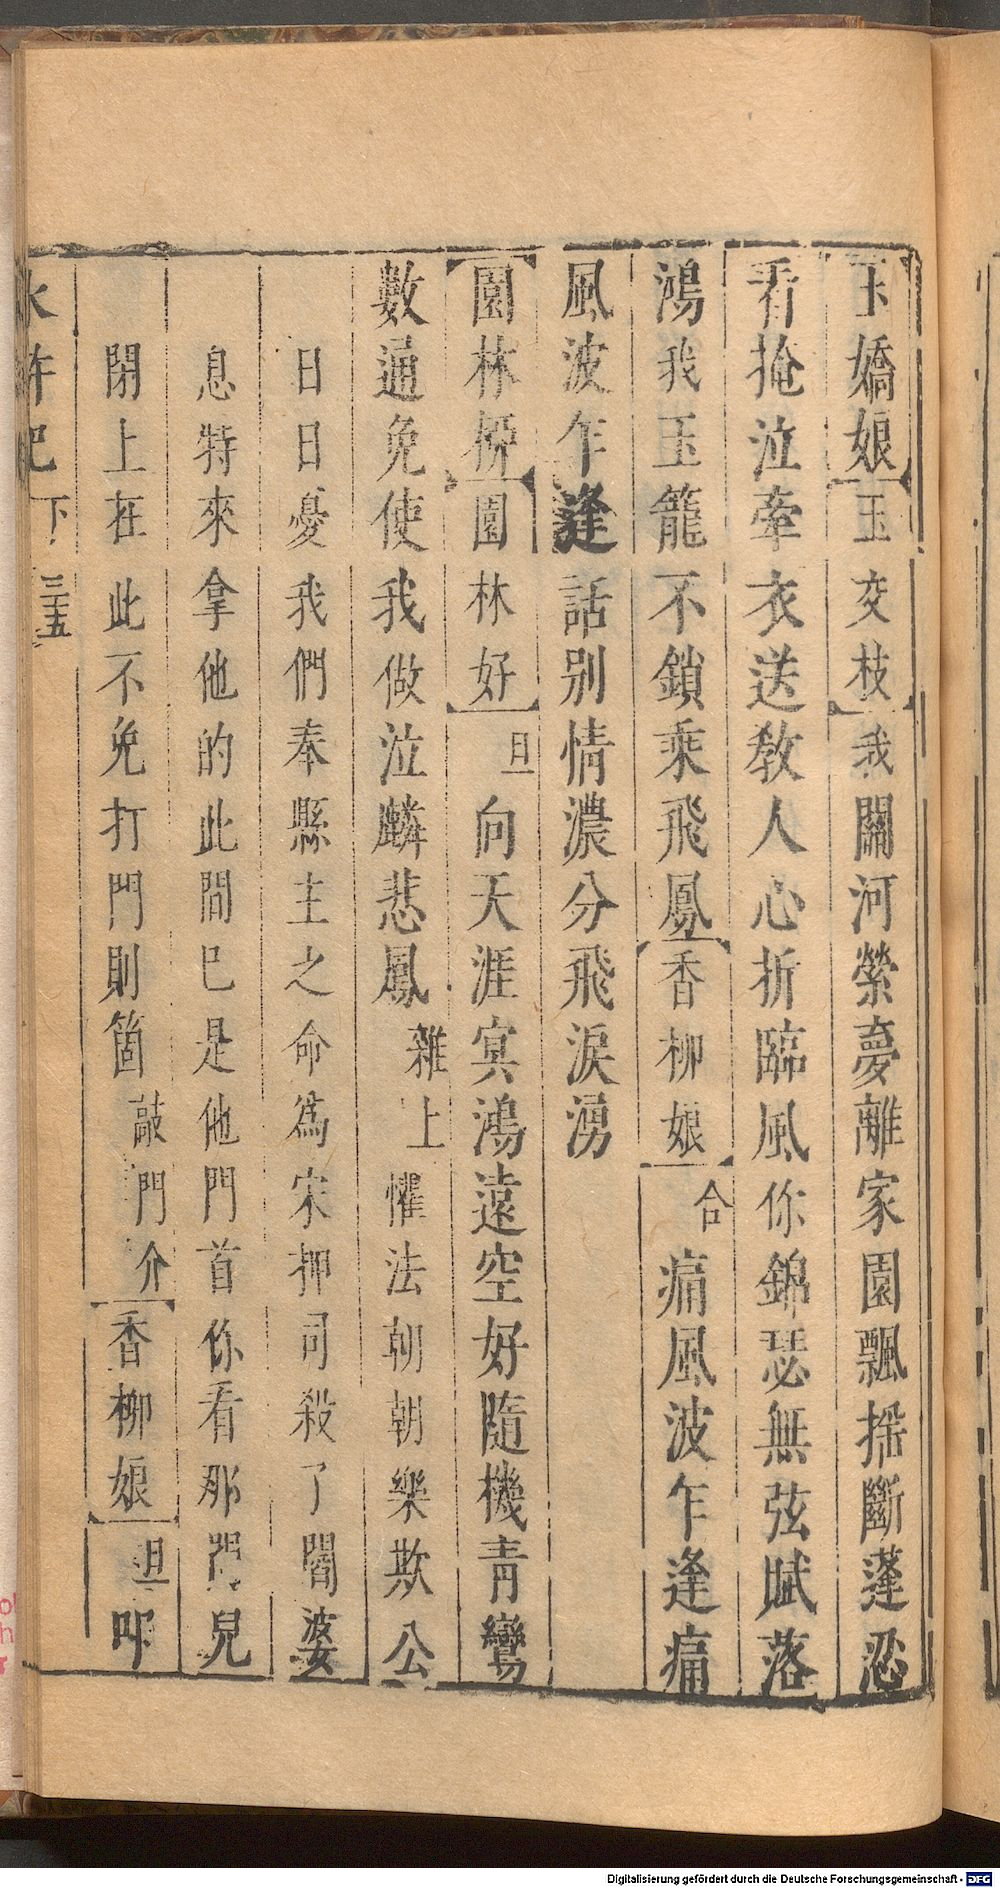 玉嬌娘玉交枝我關河縈夢離家園飄搖斷蓬忍
看掩泣牽衣送敎人心折臨風你錦瑟無弦賦落
鴻我玉籠不鎖乘飛鳳香柳娘合痛風波乍逢痛
風波乍逢話别情濃分飛淚湧
園林
園林好旦向天涯冥鴻遠空好隨機靑鸞
數通免使我做泣麟悲鳳雜上懼法朝朝樂欺公
日日憂我們奉縣主之命爲宋押司殺了閻婆
息特來拿他的此間已是他門首你看那門兒
閉上在此不免打門則箇敲門介香柳娘旦叩
水滸記下 三十五
Digitalisierung gefördert durch die Deutsche Forschungsgemeinschaft - DFG